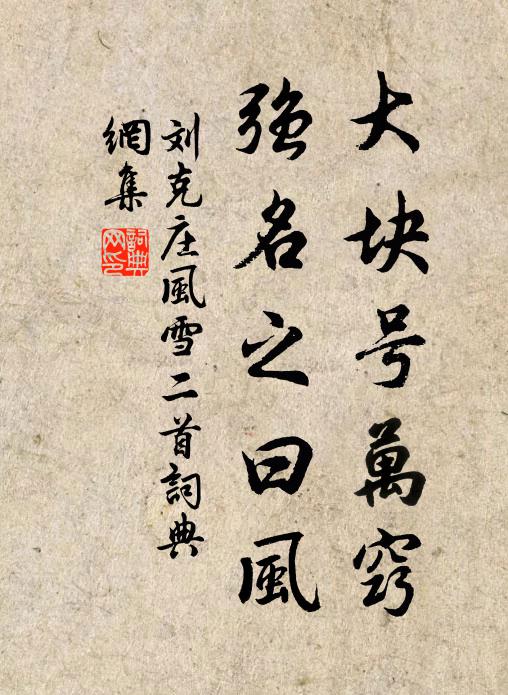 大块号萬窍
強名之曰風
刘克庄風雪二首詞典
網集
詞典
网印